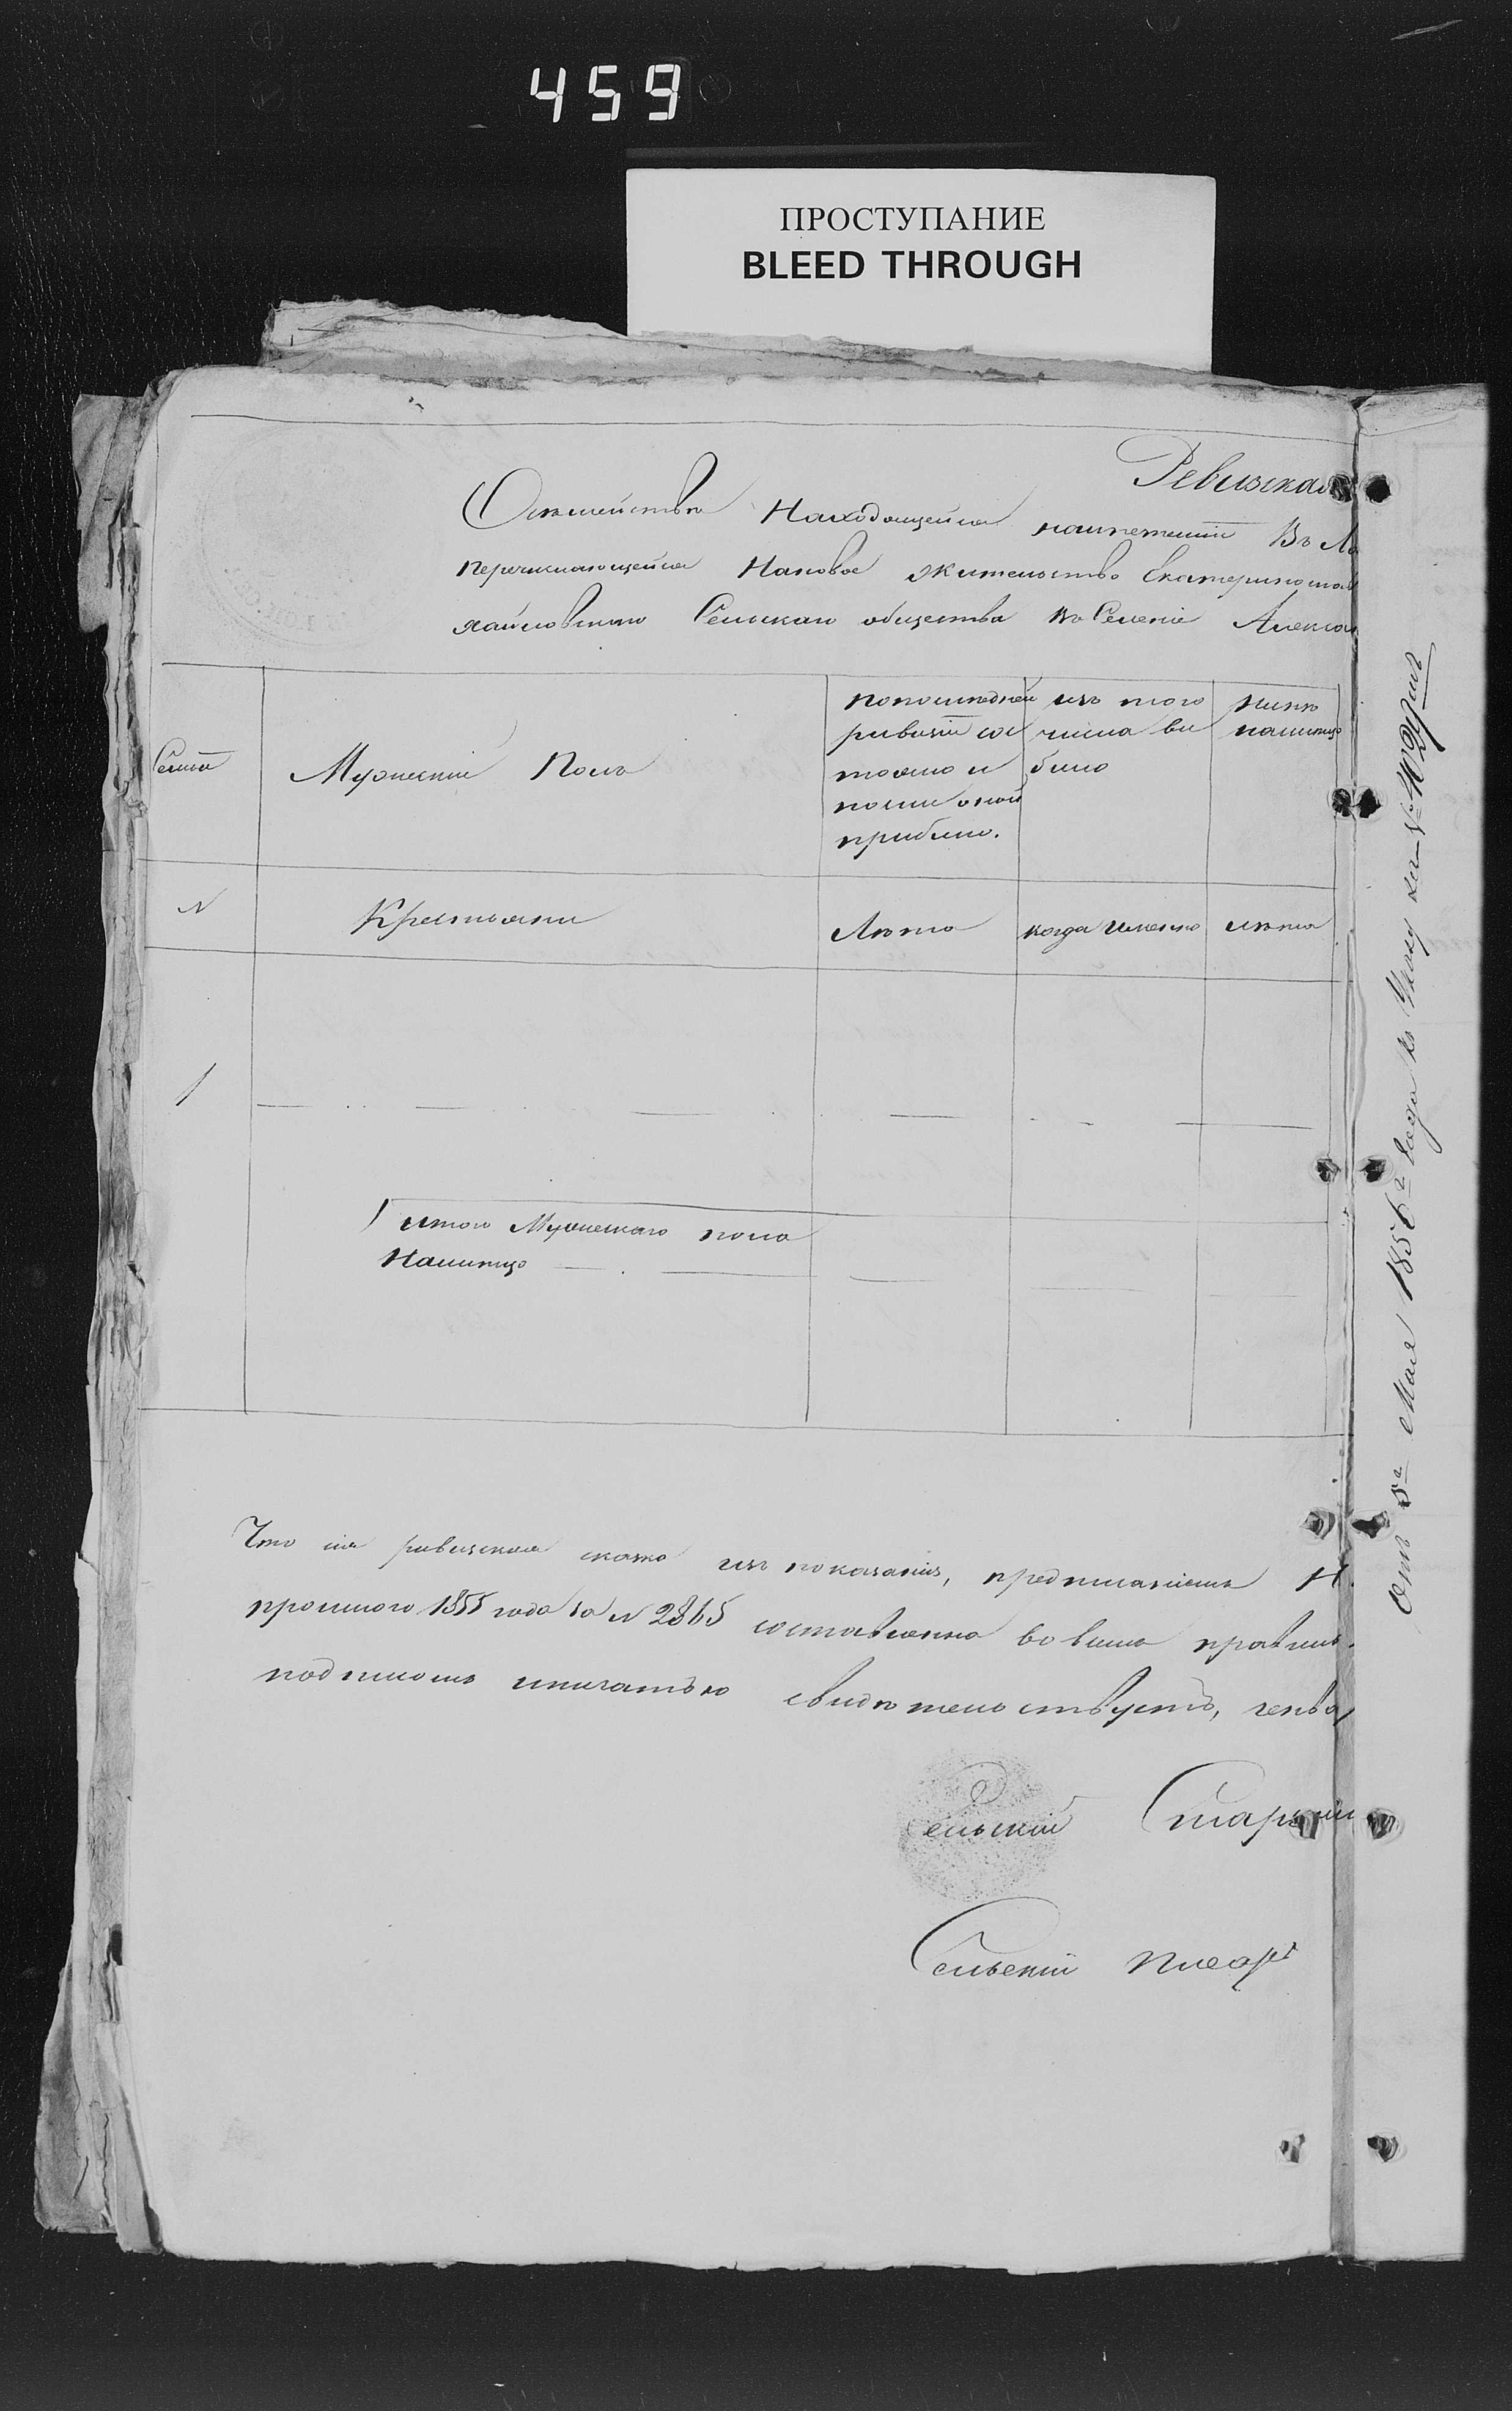 459
ПРОСТУПАНИЕ
BLEED THROUGH
Ревизская
Осемействѣ Находящейся Въ
перечисляющейся Нановое жительство Екатеринослав
хайловскаго Сельскаго общества въ Селеніе Алексан
Семьи
Мужескій Полъ
попоследней
ривизіи сос
тояло и
посли оной
прибыло.
изъ того
числа вы
было
нынѣ
налицо
№
Крестьяни
Лѣта
когда именно
лѣта
1
итого Мужескаго пола
Налицо
Что сія ривизская сказка изъ показанія, предписаніемъ
прошлого 1855 года за № 2865 составленна
подписомъ ипичатью свидѣтельствуетъ, генва
Сельскій Старшин
Сельскій писарь
Отъ 5го Мая 1856го года къ Указу за №